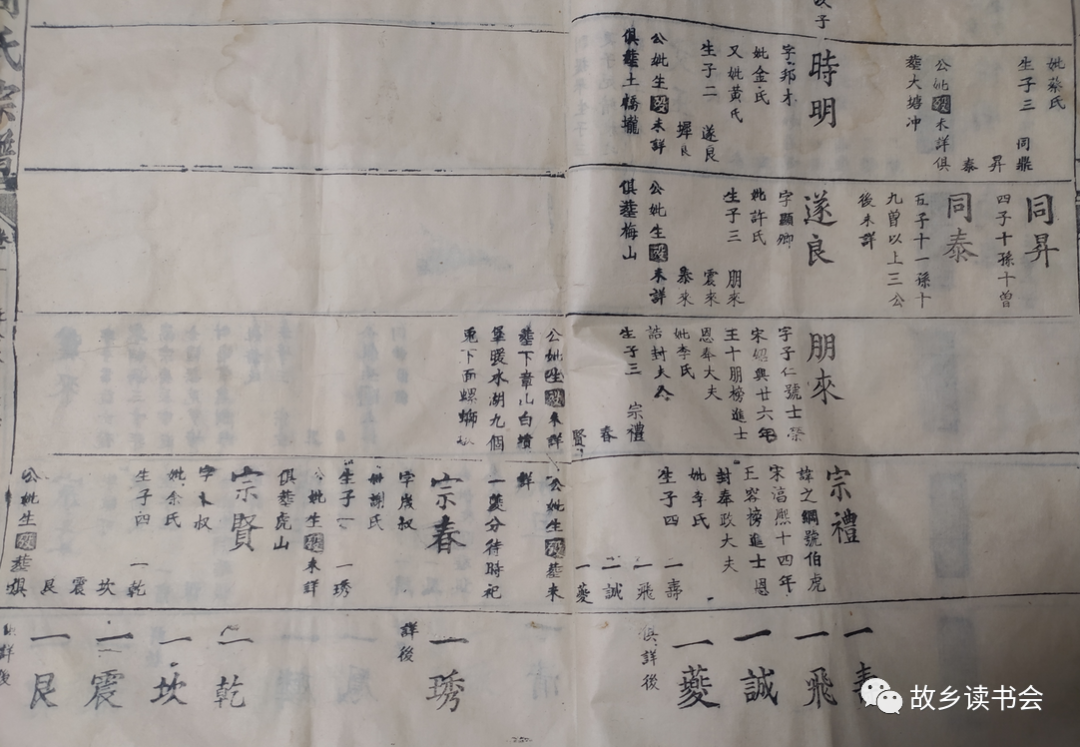 氏宗譜
子
妣蔡氏
生子三 同鼎
昇
泰
公妣生歿未詳俱
塟大塘冲
時明
字邦才
妣金氏
又妣黃氏
生子二 遂良
公妣生歿未詳
俱塟土橋壠
同昇
四子十孫十曾
同泰
五子十一孫十
九曾以上三公
後未詳
遂良
字顯卿
妣許氏
生子三 朋來
震來
泰來
公妣生歿未詳
俱塟梅山
朋來
字子仁號士榮
宋紹興廿六年
王十朋榜進士
恩奉大夫
妣李氏
誥封夫人
生子三 宗禮
春
賢
公妣生歿未詳
塟下章山白竹
堡暖水湖九個
兎下面螺螄
宗禮
諱之綱號伯虎
宋淳熙十四年
王容榜進士恩
封奉政大夫
妣李氏
生子四 一壽
一飛
一誠
一夔
公妣生歿塟未
詳
一夔分待時祀
宗春
字茂叔
妣謝氏
生子一 一琇
公妣生歿未詳
俱塟虎山
宗賢
妣余氏
生子四 一乾
坎
震
艮
公妣生歿塟俱
一壽
一飛
一誠
一夔
俱詳後
一琇
詳後
一乾
一坎
一震
一艮
俱詳後
故乡读书会